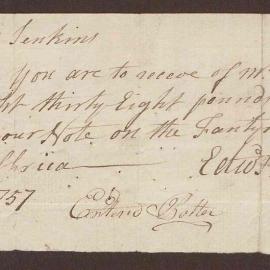 Jenkins
You are to receve of M
ht thirty Eight pound
our Note on the Fanty
Africa Edwd
757
Enterd Potter